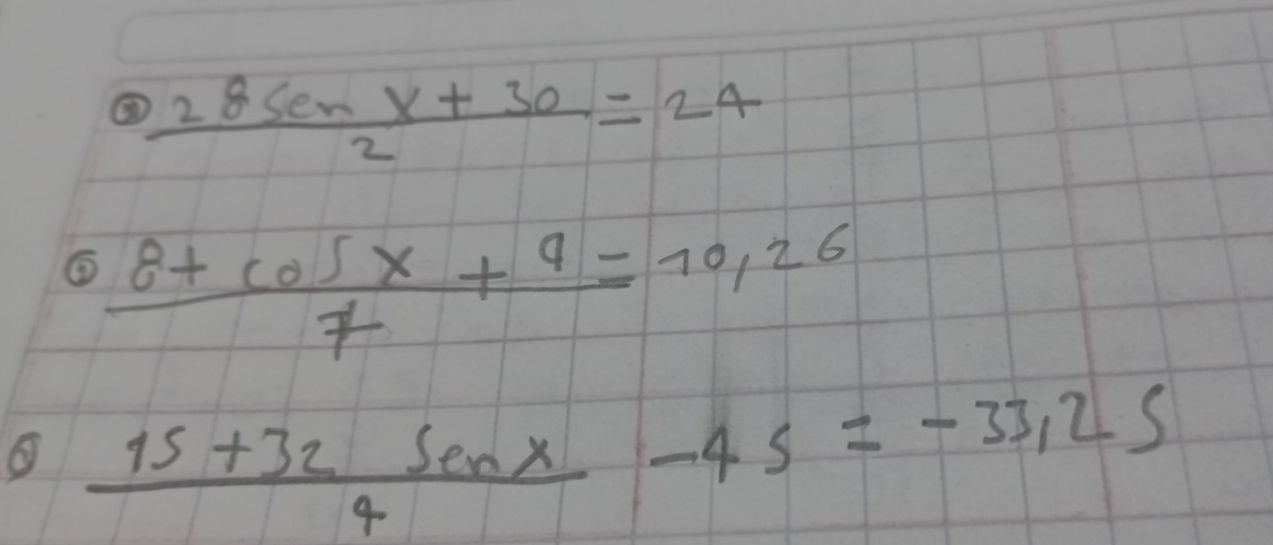 ② 28 sen x + 30 = 24
2
⑤ 8 + cos x + 9 = 10,26
7
⑥ 15 + 32 sen x - 45 = -33,25
4